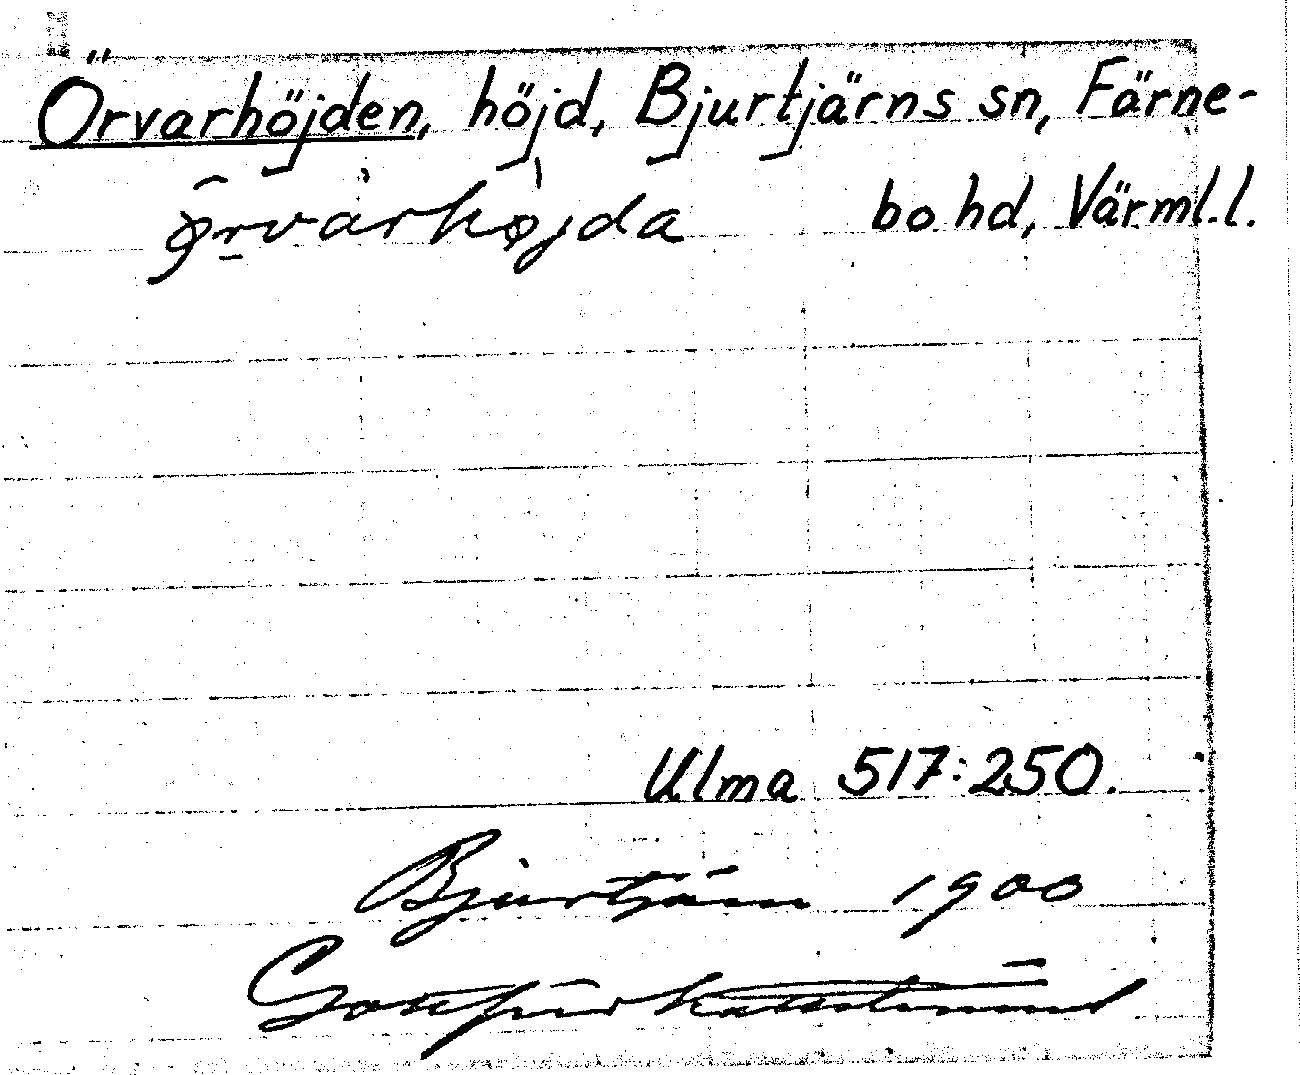 Örvarhöjden, höjd, Bjurtjärns sn, Färne-
bo hd, Värml.l.
ørvarhøjda
Ulma 517:250.
Bjurtjärn 1900
Gottfrid Kallstenius